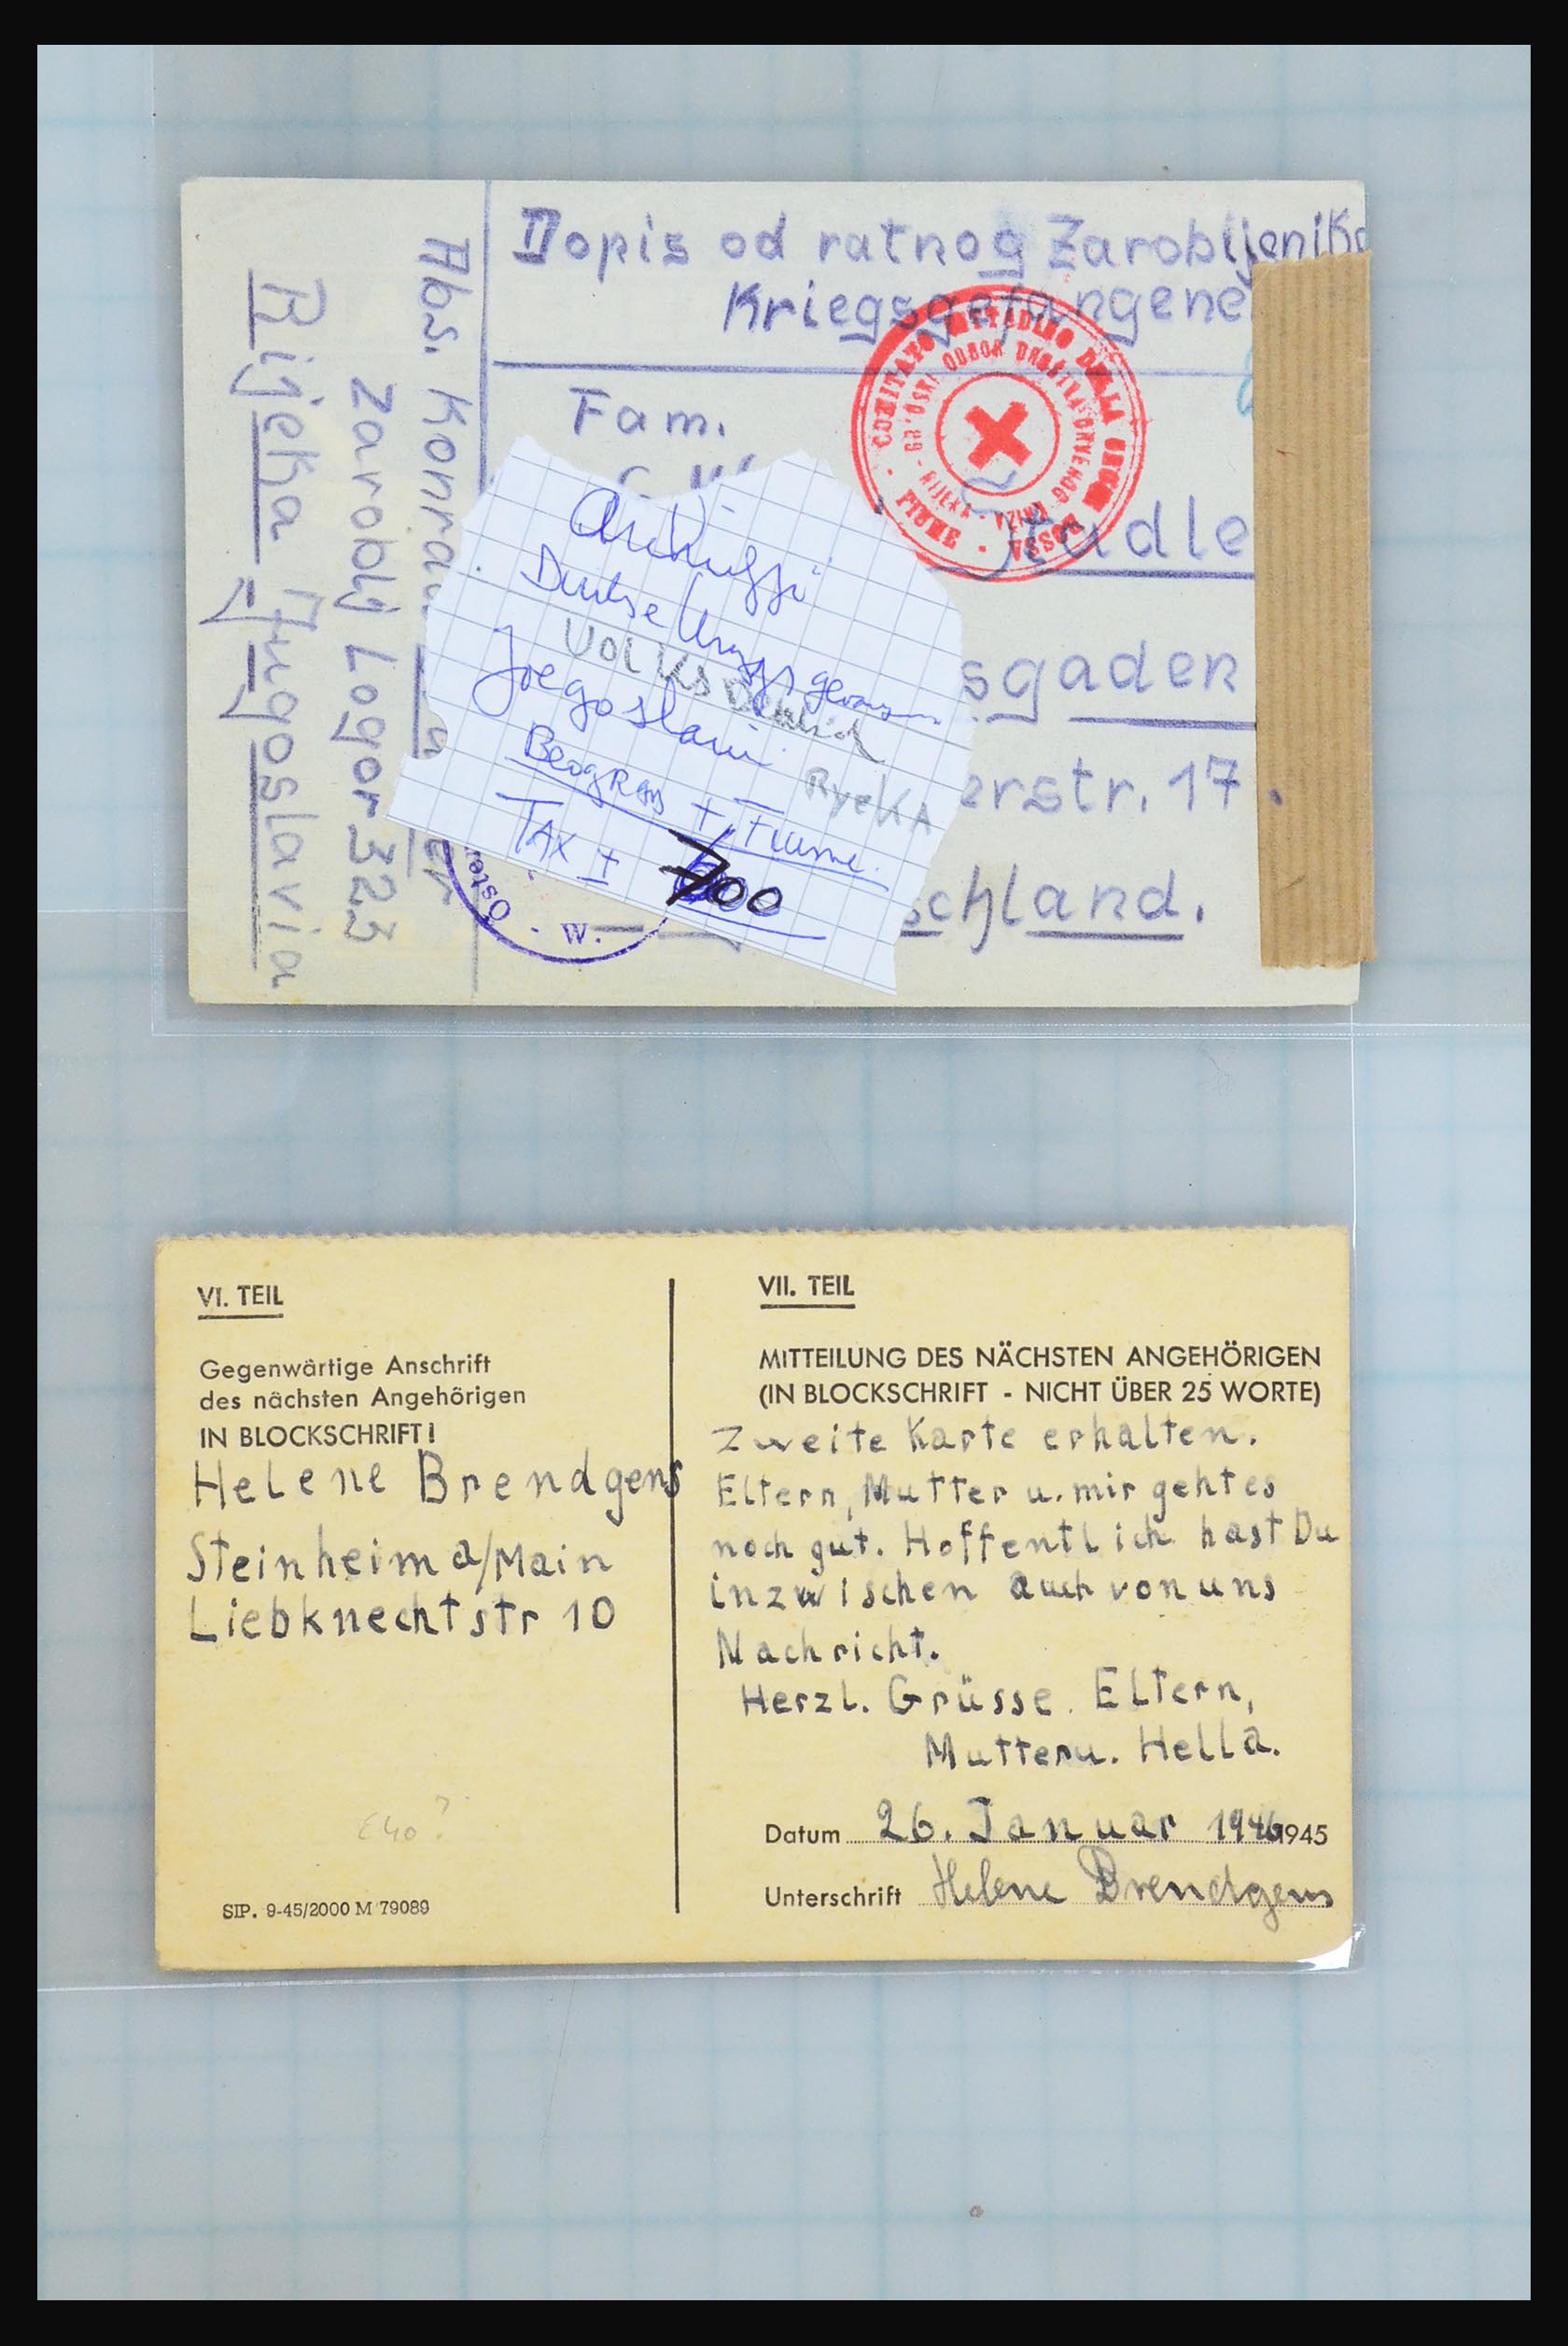 Dopis od ratnog Zarobljenika
Kriegsgefangene
Fam.
Stadle
sgaden
erstr. 17.
schland.
Abs. Konra
Zaroblj Logor 323
Rijeka Jugoslavia
COMITATO CITTADINO DELLA CROCE ROSSA · FIUME ·
ODBOR CRVENOG KRIŽA · RIJEKA
Öster
- W. -
Duitse
Joegoslavie
VolksDuits
Beograd + Fiume.
RyeKA
TAX ± 700
VI. TEIL
Gegenwärtige Anschrift
des nächsten Angehörigen
IN BLOCKSCHRIFT!
Helene Brendgens
Steinheim a/Main
Liebknechtstr 10
E40?
SIP. 9-45/2000 M 79089
VII. TEIL
MITTEILUNG DES NÄCHSTEN ANGEHÖRIGEN
(IN BLOCKSCHRIFT - NICHT ÜBER 25 WORTE)
Zweite Karte erhalten.
Eltern, Mutter u. mir geht es
noch gut. Hoffentlich hast Du
inzwischen auch von uns
Nachricht.
Herzl. Grüsse. Eltern,
Mutter u. Hella.
Datum 26. Januar 1946 1945
Unterschrift Helene Brendgens